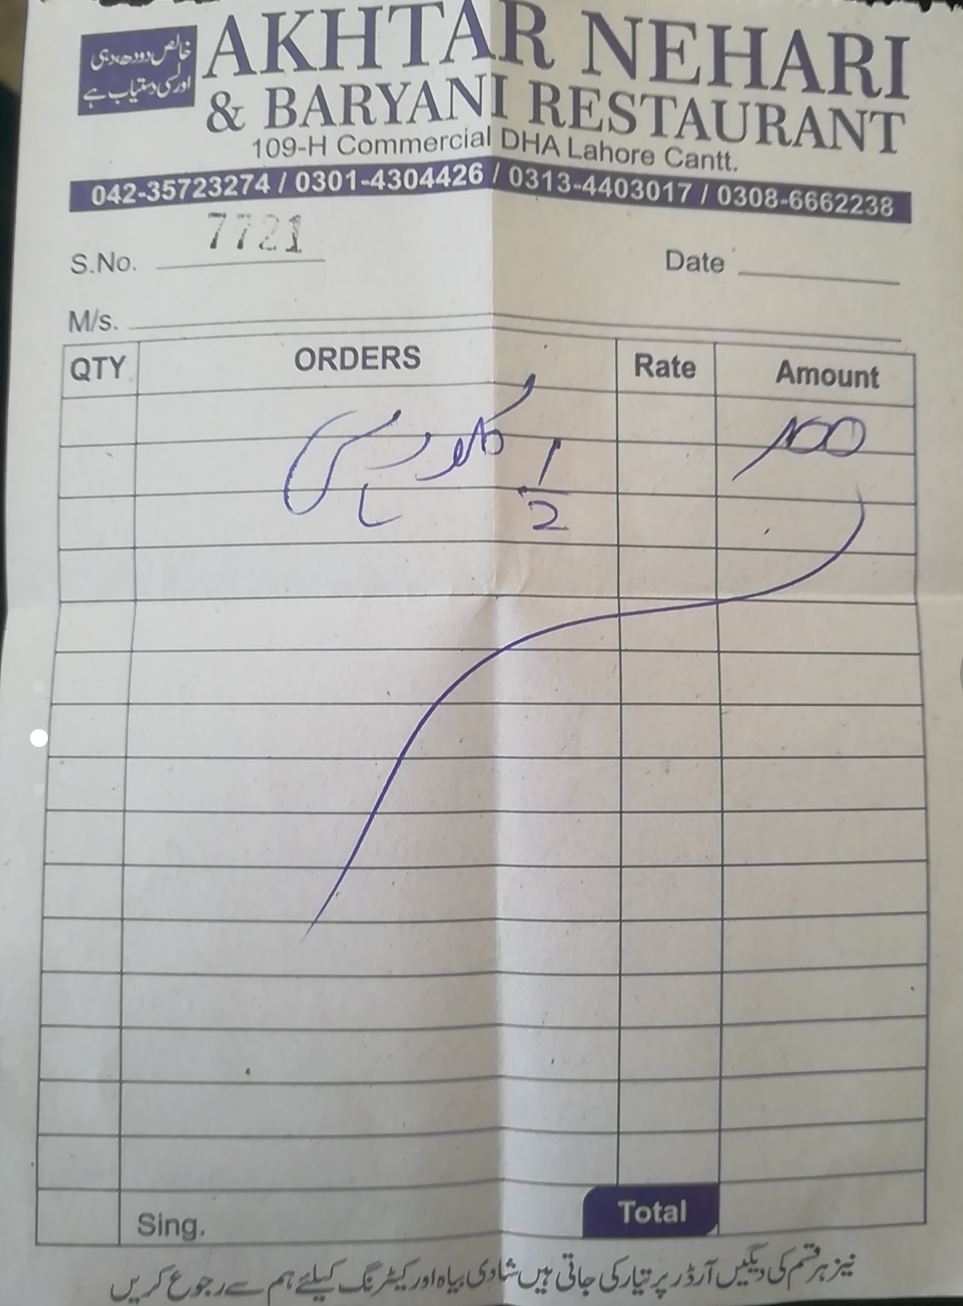 خالص دودھ دہی
اور لسی دستیاب ہے
AKHTAR NEHARI
& BARYANI RESTAURANT
109-H Commercial DHA Lahore Cantt.
042-35723274 / 0301-4304426 / 0313-4403017 / 0308-6662238
S.No. 7721 Date
M/s.
QTY ORDERS Rate Amount
1/2 کلو
Sing. Total
نیز ہر قسم کی دیگیں آرڈر پر تیار کی جاتی ہیں شادی بیاہ اور کیٹرنگ کیلئے ہم سے رجوع کریں